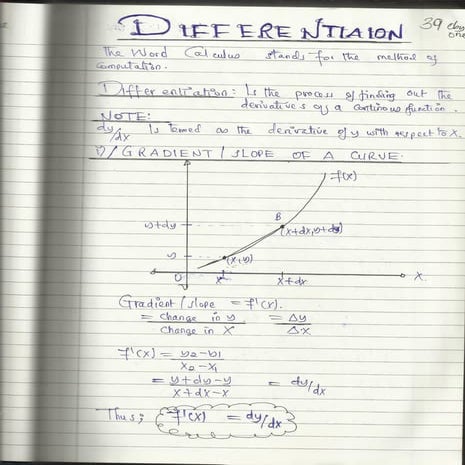 DIFFERENTIAION
39 dby one
The Word Calculus stands for the method of
computation.
Differentiation: Is the process of finding out the
derivatives of a continous function.
NOTE:
dy/dx Is termed as the derivative of y with respect to x.
i)/ GRADIENT / SLOPE OF A CURVE.
f(x)
B
y+dy
(x+dx, y+dy)
y
(x,y)
0
x
x+dx
X
Gradient / slope = f'(x).
= change in y = Δy
change in X Δx
f'(x) = y2-y1
x2-x1
= y+dy-y = dy/dx
x+dx-x
Thus; f'(x) = dy/dx